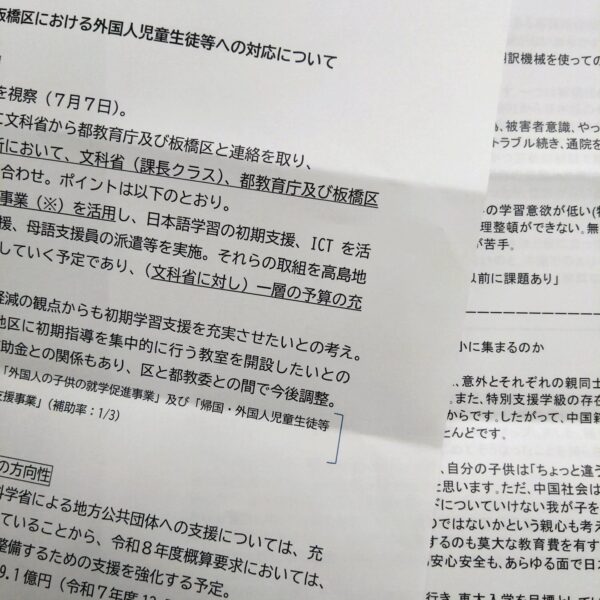 板橋区における外国人児童生徒等への対応について
を視察(7月7日)。
に文科省から都教育庁及び板橋区と連絡を取り、
において、文科省(課長クラス)、都教育庁及び板橋区
合わせ。ポイントは以下のとおり。
事業(※)を活用し、日本語学習の初期支援、ICT を活
援、母語支援員の派遣等を実施。それらの取組を高島地
していく予定であり、(文科省に対し)一層の予算の充
軽減の観点からも初期学習支援を充実させたいとの考え。
地区に初期指導を集中的に行う教室を開設したいとの
助金との関係もあり、区と都教委との間で今後調整。
「外国人の子供の就学促進事業」及び「帰国・外国人児童生徒等
支援事業」(補助率:1/3)
の方向性
科学省による地方公共団体への支援については、充
ていることから、令和8年度概算要求においては、
整備するための支援を強化する予定。
9.1億円(令和7年度
訳機械を使っての
、被害者意識、やっ
トラブル続き、通院を
の学習意欲が低い(
理整頓ができない。無
が苦手。
以前に課題あり」
小に集まるのか
、意外とそれぞれの親同士
。また、特別支援学級の存在
からです。したがって、中国籍
とんどです。
、自分の子供は「ちょっと違う
と思います。ただ、中国社会は
ドについていけない我が子を
のではないかという親心も考え
するのも莫大な教育費を有す
安心安全も、あらゆる面で日
行き、東大入学を目標として